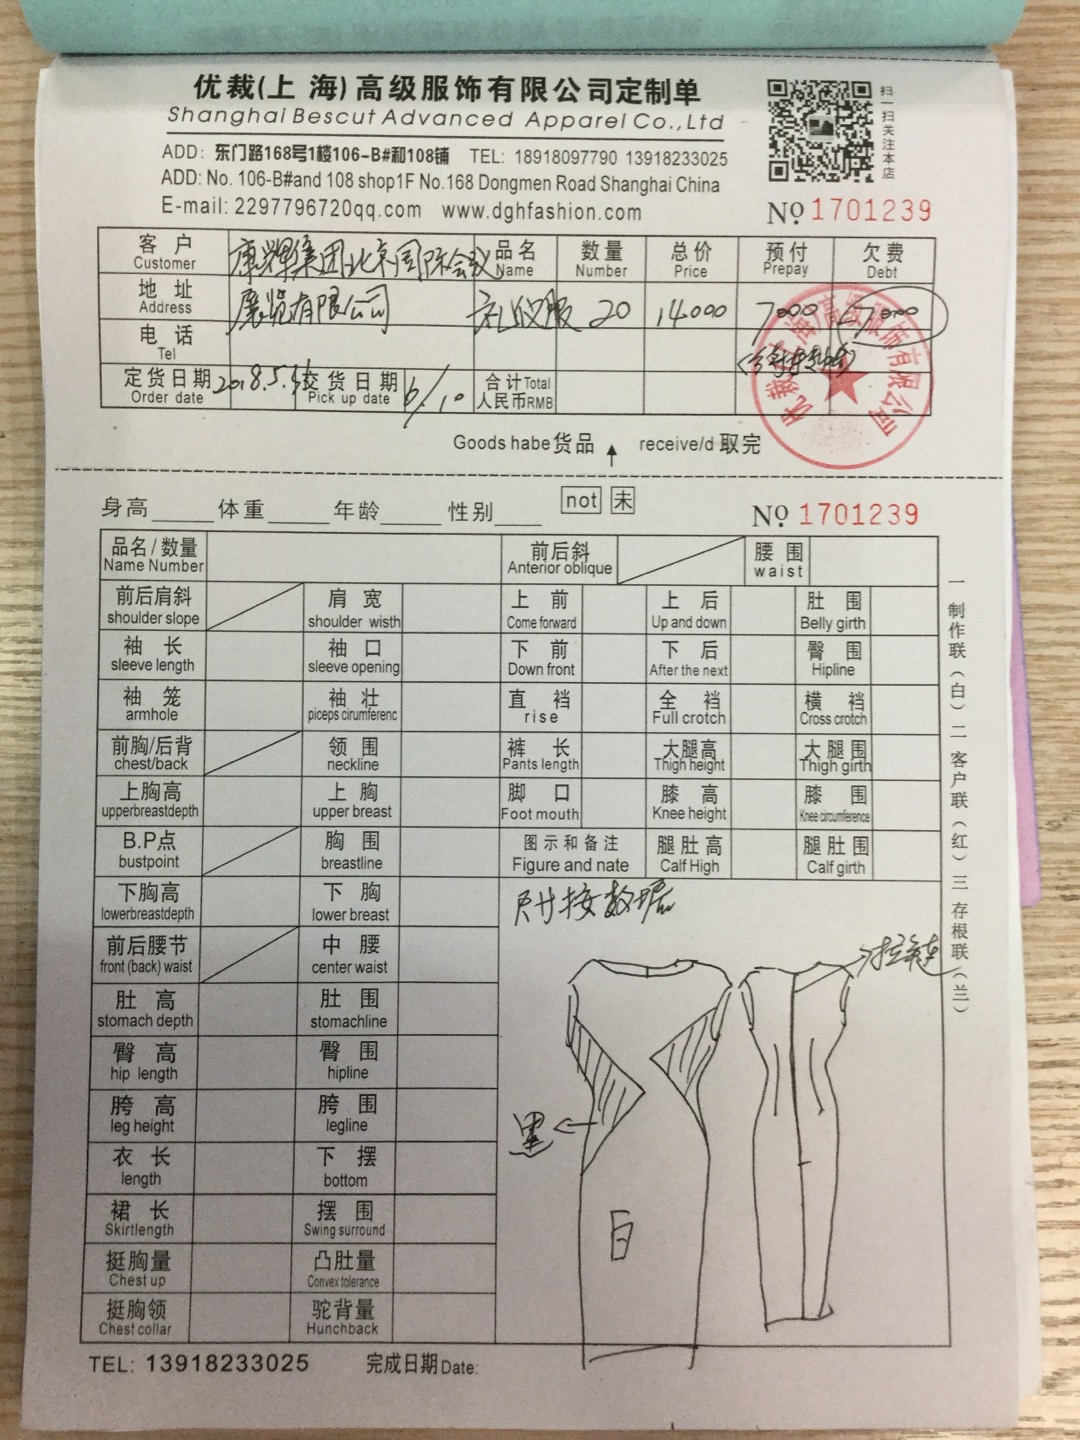 优裁(上 海)高级服饰有限公司定制单
Shanghai Bescut Advanced Apparel Co.,Ltd
扫一扫关注本店
ADD: 东门路168号1楼106-B#和108铺 TEL: 18918097790 13918233025
ADD: No. 106-B#and 108 shop1F No.168 Dongmen Road Shanghai China
E-mail: 2297796720qq.com www.dghfashion.com
No 1701239
客户 康辉集团北京国际会议 品名 数量 总价 预付 欠费
Customer Name Number Price Prepay Debt
地址 展览有限公司 礼仪服 20 14000 7000 7000
Address
电话
Tel
定货日期 2018.5. 交货日期 6/10 合计Total
Order date Pick up date 人民币RMB
Goods habe货品 ↑ receive/d 取完
身高 体重 年龄 性别 not 未
No 1701239
品名/数量 前后斜 腰围
Name Number Anterior oblique waist
前后肩斜 肩宽 上前 上后 肚围
shoulder slope shoulder wisth Come forward Up and down Belly girth
袖长 袖口 下前 下后 臀围
sleeve length sleeve opening Down front After the next Hipline
袖笼 袖壮 直裆 全裆 横裆
armhole piceps cirumferenc rise Full crotch Cross crotch
前胸/后背 领围 裤长 大腿高 大腿围
chest/back neckline Pants length Thigh height Thigh girth
上胸高 上胸 脚口 膝高 膝围
upperbreastdepth upper breast Foot mouth Knee height Knee circumference
B.P点 胸围 图示和备注 腿肚高 腿肚围
bustpoint breastline Figure and nate Calf High Calf girth
下胸高 下胸 尺寸按数据
lowerbreastdepth lower breast
前后腰节 中腰 拉链
front (back) waist center waist
肚高 肚围
stomach depth stomachline
臀高 臀围
hip length hipline
胯高 胯围 黑
leg height legline
衣长 下摆
length bottom
裙长 摆围 白
Skirtlength Swing surround
挺胸量 凸肚量
Chest up Convex tolerance
挺胸领 驼背量
Chest collar Hunchback
一制作联(白)二客户联(红)三存根联(兰)
TEL: 13918233025 完成日期Date:
优裁(上海)高级服饰有限公司